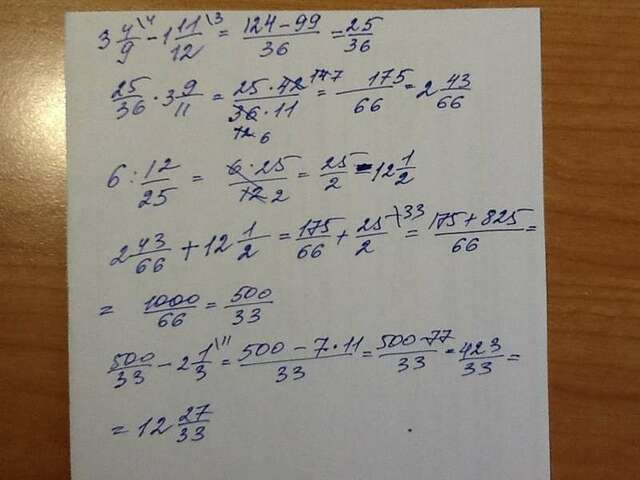 3 4/9 \4 - 1 11/12 \3 = (124 - 99)/36 = 25/36
25/36 · 3 9/11 = (25 · 42 14 7)/(36 12 6 · 11) = 175/66 = 2 43/66
6 : 12/25 = (6 · 25)/(12 2) = 25/2 = 12 1/2
2 43/66 + 12 1/2 = 175/66 + 25/2 \33 = (175 + 825)/66 =
= 1000/66 = 500/33
500/33 - 2 1/3 \11 = (500 - 7 · 11)/33 = (500 - 77)/33 = 423/33 =
= 12 27/33